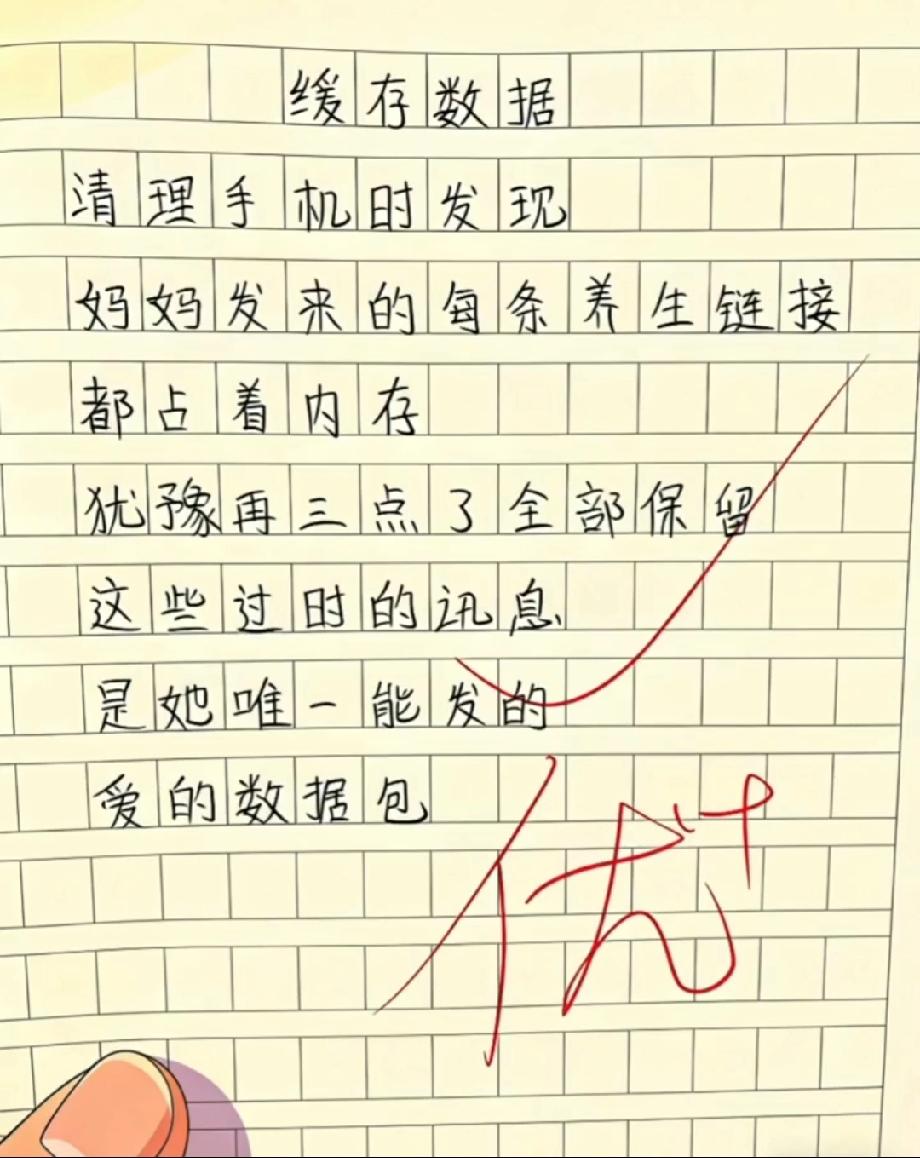 缓存数据
清理手机时发现
妈妈发来的每条养生链接
都占着内存
犹豫再三点了全部保留
这些过时的讯息
是她唯一能发的
爱的数据包
优+